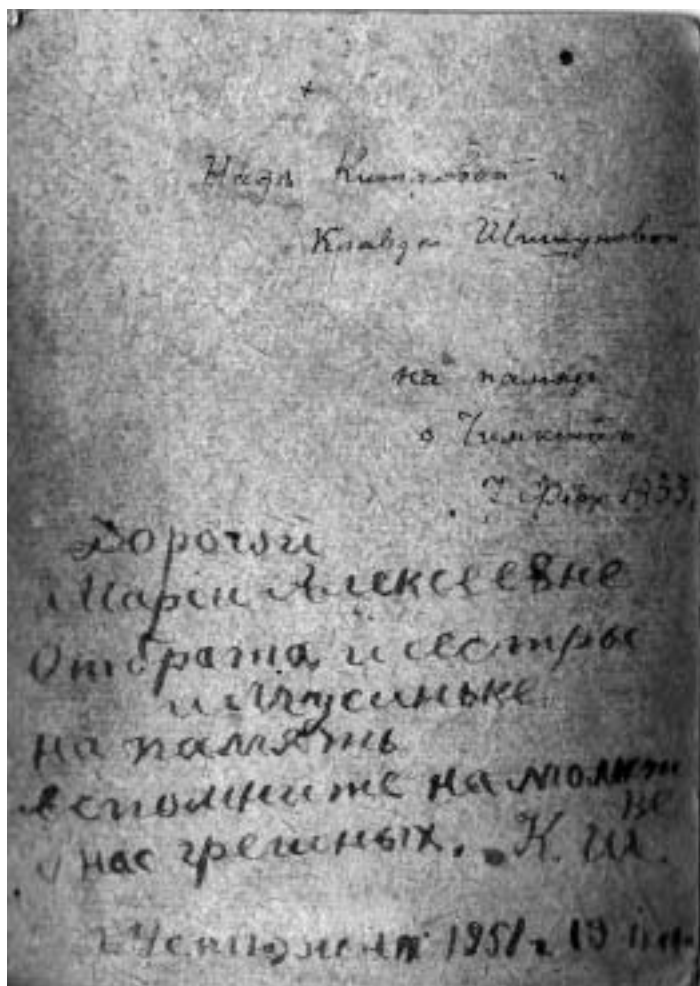 Наде и
Клавдии Шишуновой
на память
о Чимкенте
7 Февр 1933
Дорогой
Марiи Алексеевне
От брата и сестры
и Мусиньке
на память
вспомните на молит
ве
нас грешных. К. Ш.
г Устюжна 1951 г 19